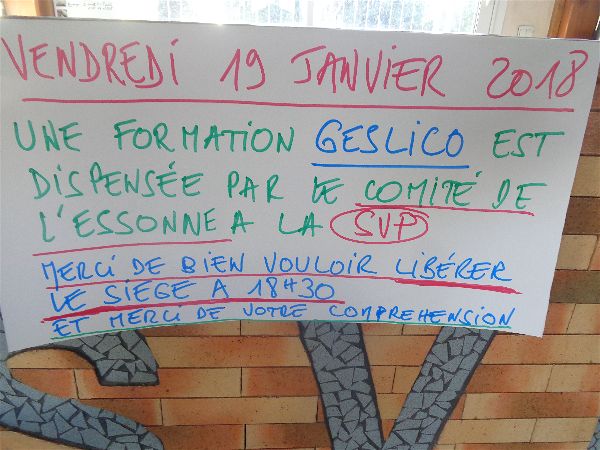 VENDREDI 19 JANVIER 2018
UNE FORMATION GESLICO EST
DISPENSÉE PAR LE COMITÉ DE
L'ESSONNE A LA SVP
MERCI DE BIEN VOULOIR LIBÉRER
LE SIEGE A 18H30
ET MERCI DE VOTRE COMPREHENSION
SV